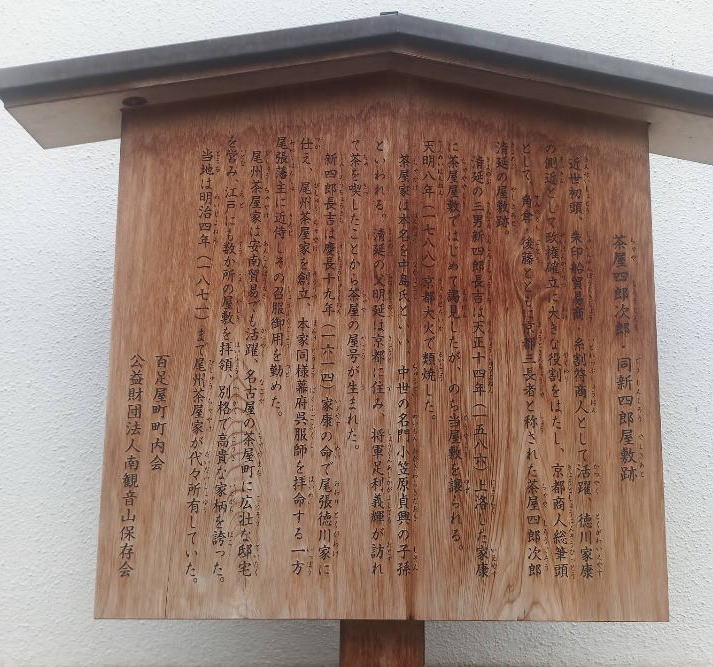 茶屋四郎次郎 同新四郎屋敷跡
近世初頭、朱印船貿易商、糸割符商人として活躍、徳川家康
の側近として政権確立に大きな役割をはたし、京都商人総筆頭
として、角倉・後藤とともに京都三長者と称された茶屋四郎次郎
清延の屋敷跡。
清延の三男新四郎長吉は天正十四年(一五八六)上洛した家康
に茶屋屋敷ではじめて謁見したが、のち当屋敷を譲られる。
天明八年(一七八八)京都大火で類焼した。
茶屋家は本名を中島氏といい、中世の名門小笠原貞興の子孫
といわれる。清延の父明延は京都に住み、将軍足利義輝が訪れ
て茶を喫したことから茶屋の屋号が生まれた。
新四郎長吉は慶長十九年(一六一四)家康の命で尾張徳川家に
仕え、尾州茶屋家を創立、本家同様幕府呉服師を拝命する一方
尾張藩主に近侍、その召服御用を勤めた。
尾州茶屋家は安南貿易でも活躍、名古屋の茶屋町に広壮な邸宅
を営み、江戸にも数か所の屋敷を拝領、別格で高貴な家柄を誇った。
当地は明治四年(一八七一)まで尾州茶屋家が代々所有していた。
百足屋町町内会
公益財団法人南観音山保存会